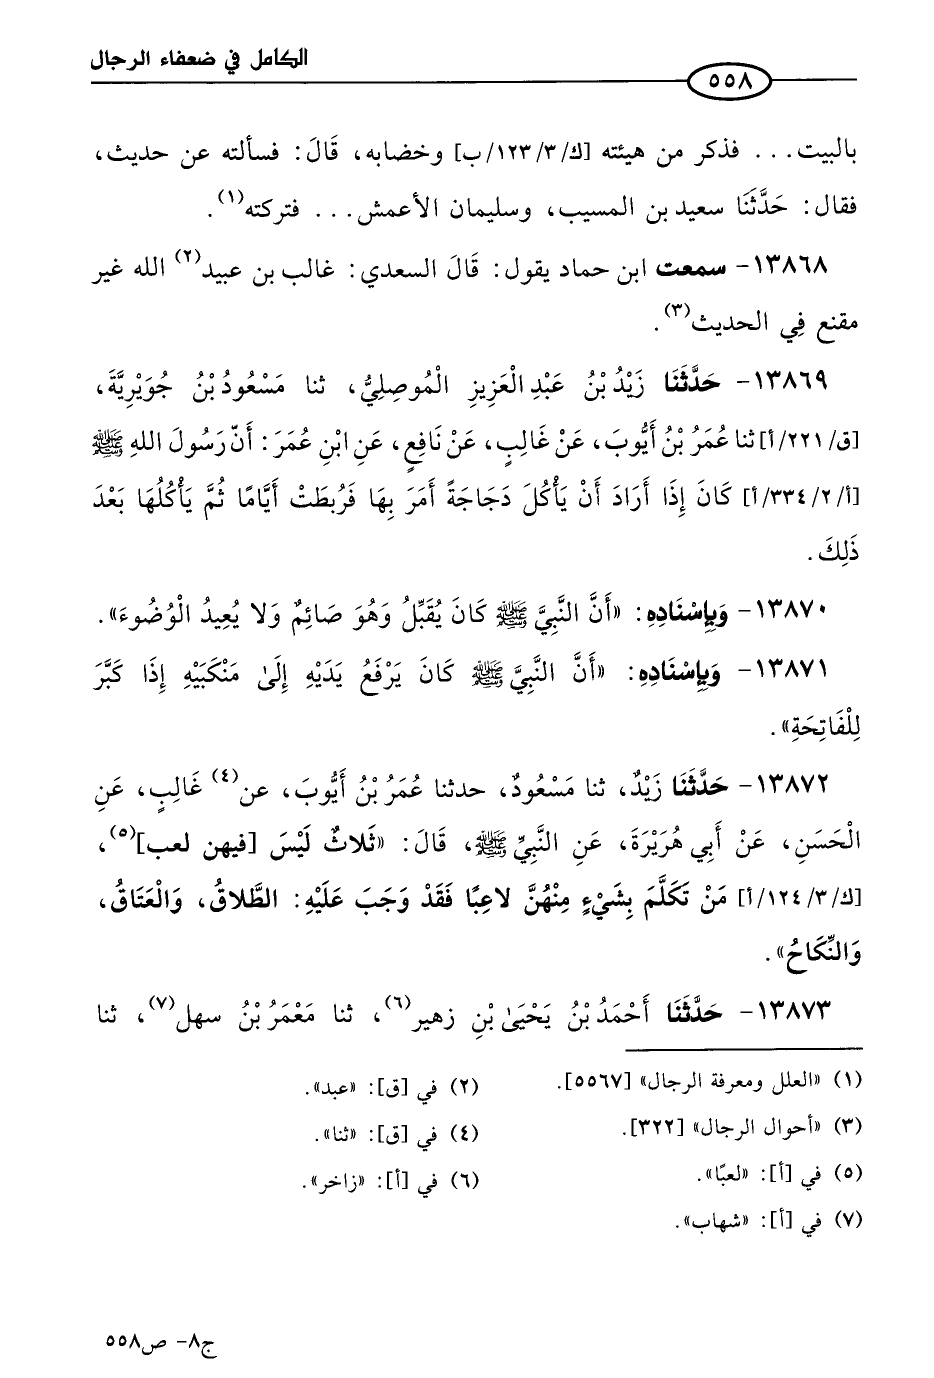 الكامل في ضعفاء الرجال
٥٥٨
بالبيت... فذكر من هيئته [ك/٣/١٢٣/ب] وخضابه، قَالَ: فسألته عن حديث،
فقال: حَدَّثَنَا سعيد بن المسيب، وسليمان الأعمش... فتركته(١).
١٣٨٦٨- سمعت ابن حماد يقول: قَالَ السعدي: غالب بن عبيد(٢) الله غير
مقنع فِي الحديث(٣).
١٣٨٦٩- حَدَّثَنَا زَيْدُ بْنُ عَبْدِ الْعَزِيزِ الْمُوصِلِيُّ، ثنا مَسْعُودُ بْنُ جُوَيْرِيَّةَ،
[ق/٢٢١/أ] ثنا عُمَرُ بْنُ أَيُّوبَ، عَنْ غَالِبٍ، عَنْ نَافِعٍ، عَنِ ابْنِ عُمَرَ: أَنّ رَسُولَ اللهِ ﷺ
[أ/٢/٣٣٤/أ] كَانَ إِذَا أَرَادَ أَنْ يَأْكُلَ دَجَاجَةً أَمَرَ بِهَا فَرُبِطَتْ أَيَّامًا ثُمَّ يَأْكُلُهَا بَعْدَ
ذَلِكَ.
١٣٨٧٠- وَبِإِسْنَادِهِ: «أَنَّ النَّبِيَّ ﷺ كَانَ يُقَبِّلُ وَهُوَ صَائِمٌ وَلا يُعِيدُ الْوُضُوءَ».
١٣٨٧١- وَبِإِسْنَادِهِ: «أَنَّ النَّبِيَّ ﷺ كَانَ يَرْفَعُ يَدَيْهِ إِلَىٰ مَنْكَبَيْهِ إِذَا كَبَّرَ
لِلْفَاتِحَةِ».
١٣٨٧٢- حَدَّثَنَا زَيْدٌ، ثنا مَسْعُودٌ، حدثنا عُمَرُ بْنُ أَيُّوبَ، عن(٤) غَالِبٍ، عَنِ
الْحَسَنِ، عَنْ أَبِي هُرَيْرَةَ، عَنِ النَّبِيِّ ﷺ، قَالَ: «ثَلاثٌ لَيْسَ [فيهن لعب](٥)،
[ك/٣/١٢٤/أ] مَنْ تَكَلَّمَ بِشَيْءٍ مِنْهُنَّ لاعِبًا فَقَدْ وَجَبَ عَلَيْهِ: الطَّلاقُ، وَالْعَتَاقُ،
وَالنِّكَاحُ».
١٣٨٧٣- حَدَّثَنَا أَحْمَدُ بْنُ يَحْيَىٰ بْنِ زهير(٦)، ثنا مَعْمَرُ بْنُ سهل(٧)، ثنا
(١) «العلل ومعرفة الرجال» [٥٥٦٧]. (٢) في [ق]: «عبد».
(٣) «أحوال الرجال» [٣٢٢]. (٤) في [ق]: «ثنا».
(٥) في [أ]: «لعبًا». (٦) في [أ]: «زاخر».
(٧) في [أ]: «شهاب».
ج٨- ص٥٥٨